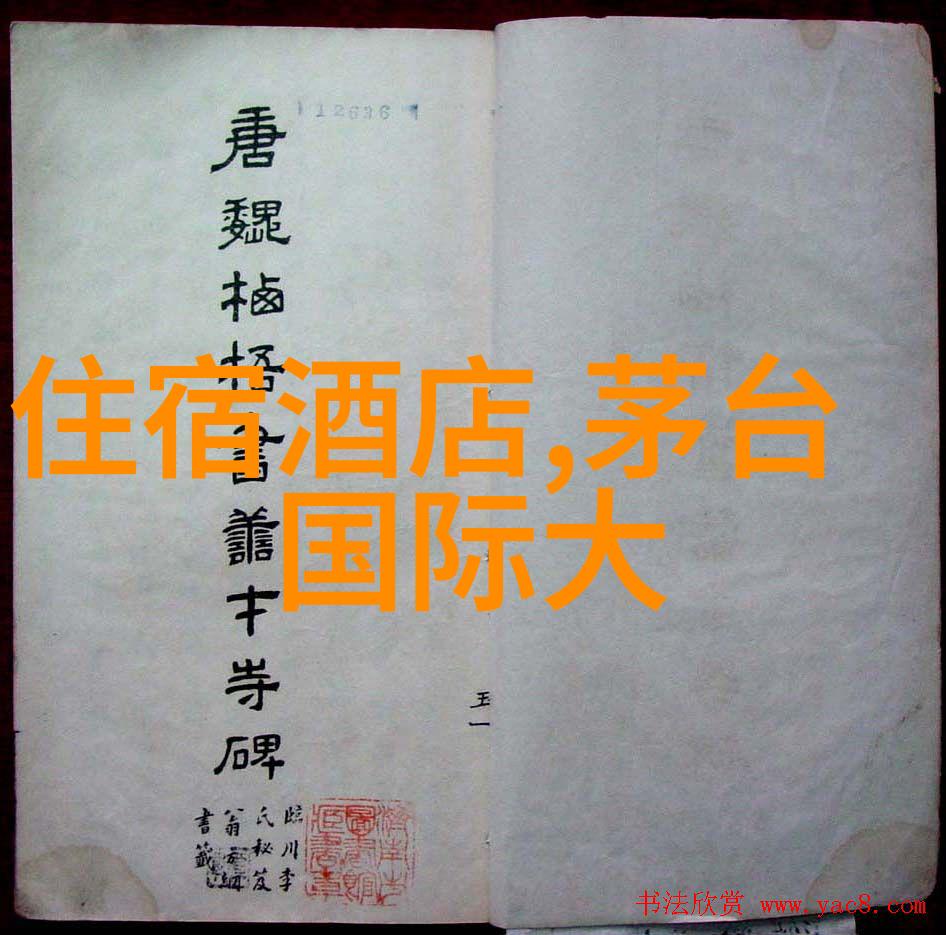 12636
唐魏栖梧書善才寺碑
住宿酒店,茅台
国际大
玉一
臨川李
氏秘笈
翁方綱
書籤
书法欣赏 www.yac8.com